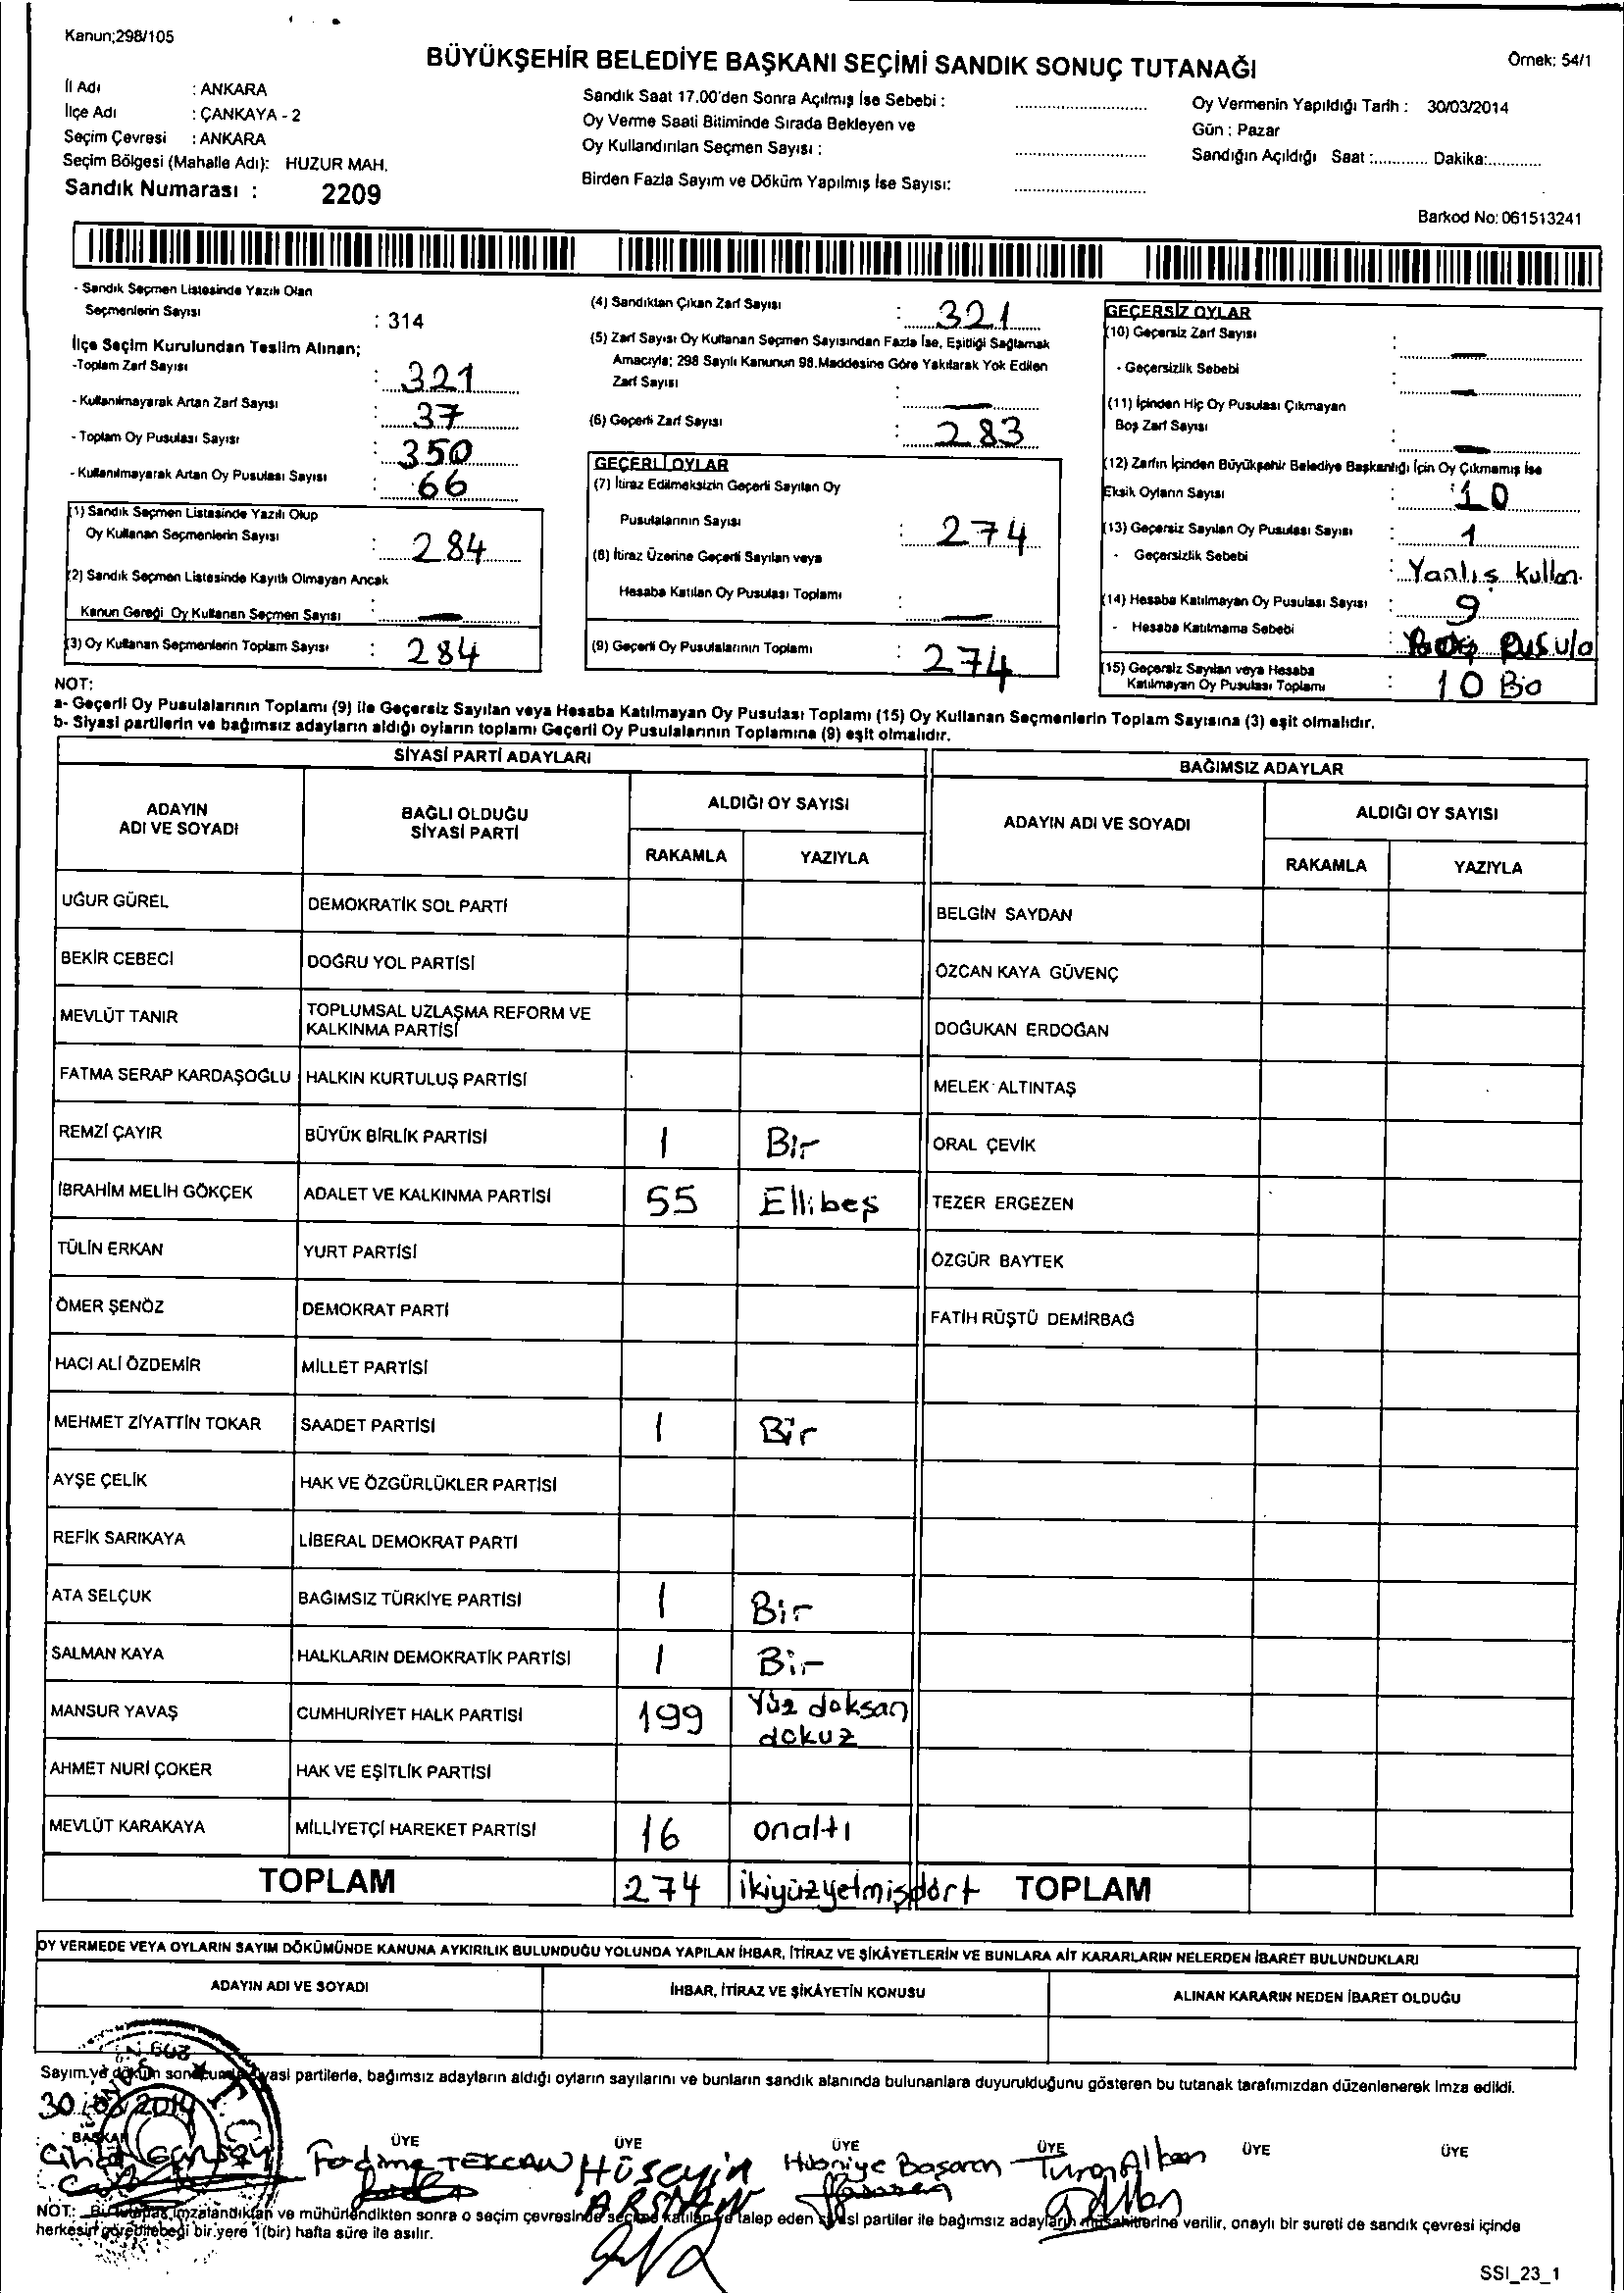 Kanun;298/105
BÜYÜKŞEHİR BELEDİYE BAŞKANI SEÇİMİ SANDIK SONUÇ TUTANAĞI
Örnek: 54/1
İl Adı : ANKARA
İlçe Adı : ÇANKAYA - 2
Seçim Çevresi : ANKARA
Seçim Bölgesi (Mahalle Adı): HUZUR MAH.
Sandık Numarası : 2209
Sandık Saat 17.00'den Sonra Açılmış İse Sebebi :
Oy Verme Saati Bitiminde Sırada Bekleyen ve
Oy Kullandırılan Seçmen Sayısı :
Birden Fazla Sayım ve Döküm Yapılmış İse Sayısı:
Oy Vermenin Yapıldığı Tarih : 30/03/2014
Gün : Pazar
Sandığın Açıldığı Saat :............ Dakika:............
Barkod No: 061513241
- Sandık Seçmen Listesinde Yazılı Olan
Seçmenlerin Sayısı : 314
İlçe Seçim Kurulundan Teslim Alınan;
-Toplam Zarf Sayısı : 321
- Kullanılmayarak Artan Zarf Sayısı : 37
- Toplam Oy Pusulası Sayısı : 350
- Kullanılmayarak Artan Oy Pusulası Sayısı : 66
(1) Sandık Seçmen Listesinde Yazılı Olup
Oy Kullanan Seçmenlerin Sayısı : 284
(2) Sandık Seçmen Listesinde Kayıtlı Olmayan Ancak
Kanun Gereği Oy Kullanan Seçmen Sayısı : —
(3) Oy Kullanan Seçmenlerin Toplam Sayısı : 284
(4) Sandıktan Çıkan Zarf Sayısı : 321
(5) Zarf Sayısı Oy Kullanan Seçmen Sayısından Fazla İse, Eşitliği Sağlamak
Amacıyla; 298 Sayılı Kanunun 98.Maddesine Göre Yakılarak Yok Edilen
Zarf Sayısı : —
(6) Geçerli Zarf Sayısı : 283
GEÇERLİ OYLAR
(7) İtiraz Edilmeksizin Geçerli Sayılan Oy
Pusulalarının Sayısı : 274
(8) İtiraz Üzerine Geçerli Sayılan veya
Hesaba Katılan Oy Pusulası Toplamı : —
(9) Geçerli Oy Pusulalarının Toplamı : 274
GEÇERSİZ OYLAR
(10) Geçersiz Zarf Sayısı : —
- Geçersizlik Sebebi : —
(11) İçinden Hiç Oy Pusulası Çıkmayan
Boş Zarf Sayısı : —
(12) Zarfın İçinden Büyükşehir Belediye Başkanlığı İçin Oy Çıkmamış İse
Eksik Oyların Sayısı : 10
(13) Geçersiz Sayılan Oy Pusulası Sayısı : 1
- Geçersizlik Sebebi : Yanlış kullan.
(14) Hesaba Katılmayan Oy Pusulası Sayısı : 9
- Hesaba Katılmama Sebebi : Pusula
(15) Geçersiz Sayılan veya Hesaba
Katılmayan Oy Pusulası Toplamı : 10
NOT:
a- Geçerli Oy Pusulalarının Toplamı (9) ile Geçersiz Sayılan veya Hesaba Katılmayan Oy Pusulası Toplamı (15) Oy Kullanan Seçmenlerin Toplam Sayısına (3) eşit olmalıdır.
b- Siyasi partilerin ve bağımsız adayların aldığı oyların toplamı Geçerli Oy Pusulalarının Toplamına (9) eşit olmalıdır.
SİYASİ PARTİ ADAYLARI BAĞIMSIZ ADAYLAR
ADAYIN
ADI VE SOYADI
BAĞLI OLDUĞU
SİYASİ PARTİ
ALDIĞI OY SAYISI
RAKAMLA YAZIYLA
ADAYIN ADI VE SOYADI
ALDIĞI OY SAYISI
RAKAMLA YAZIYLA
UĞUR GÜREL DEMOKRATİK SOL PARTİ BELGİN SAYDAN
BEKİR CEBECİ DOĞRU YOL PARTİSİ ÖZCAN KAYA GÜVENÇ
MEVLÜT TANIR TOPLUMSAL UZLAŞMA REFORM VE
KALKINMA PARTİSİ DOĞUKAN ERDOĞAN
FATMA SERAP KARDAŞOĞLU HALKIN KURTULUŞ PARTİSİ MELEK ALTINTAŞ
REMZİ ÇAYIR BÜYÜK BİRLİK PARTİSİ 1 Bir ORAL ÇEVİK
İBRAHİM MELİH GÖKÇEK ADALET VE KALKINMA PARTİSİ 55 Ellibeş TEZER ERGEZEN
TÜLİN ERKAN YURT PARTİSİ ÖZGÜR BAYTEK
ÖMER ŞENÖZ DEMOKRAT PARTİ FATİH RÜŞTÜ DEMİRBAĞ
HACI ALİ ÖZDEMİR MİLLET PARTİSİ
MEHMET ZİYATTİN TOKAR SAADET PARTİSİ 1 Bir
AYŞE ÇELİK HAK VE ÖZGÜRLÜKLER PARTİSİ
REFİK SARIKAYA LİBERAL DEMOKRAT PARTİ
ATA SELÇUK BAĞIMSIZ TÜRKİYE PARTİSİ 1 Bir
SALMAN KAYA HALKLARIN DEMOKRATİK PARTİSİ 1 Bir
MANSUR YAVAŞ CUMHURİYET HALK PARTİSİ 199 Yüz doksan
dokuz
AHMET NURİ ÇOKER HAK VE EŞİTLİK PARTİSİ
MEVLÜT KARAKAYA MİLLİYETÇİ HAREKET PARTİSİ 16 onaltı
TOPLAM 274 ikiyüzyetmişdört TOPLAM
OY VERMEDE VEYA OYLARIN SAYIM DÖKÜMÜNDE KANUNA AYKIRILIK BULUNDUĞU YOLUNDA YAPILAN İHBAR, İTİRAZ VE ŞİKÂYETLERİN VE BUNLARA AİT KARARLARIN NELERDEN İBARET BULUNDUKLARI
ADAYIN ADI VE SOYADI İHBAR, İTİRAZ VE ŞİKÂYETİN KONUSU ALINAN KARARIN NEDEN İBARET OLDUĞU
Sayım ve döküm sonucunda siyasi partilerle, bağımsız adayların aldığı oyların sayılarını ve bunların sandık alanında bulunanlara duyurulduğunu gösteren bu tutanak tarafımızdan düzenlenerek imza edildi.
30/03/2014
BAŞKAN ÜYE ÜYE ÜYE ÜYE ÜYE ÜYE
Fadime TEKCAN Hüseyin ARSLAN Hüsniye Başaran Turan Alkan
NOT: Bu tutanak imzalandıktan ve mühürlendikten sonra o seçim çevresinde seçime katılan ve talep eden siyasi partiler ile bağımsız adayların müşahitlerine verilir, onaylı bir sureti de sandık çevresi içinde
herkesin görebileceği bir yere 1(bir) hafta süre ile asılır.
SSI_23_1